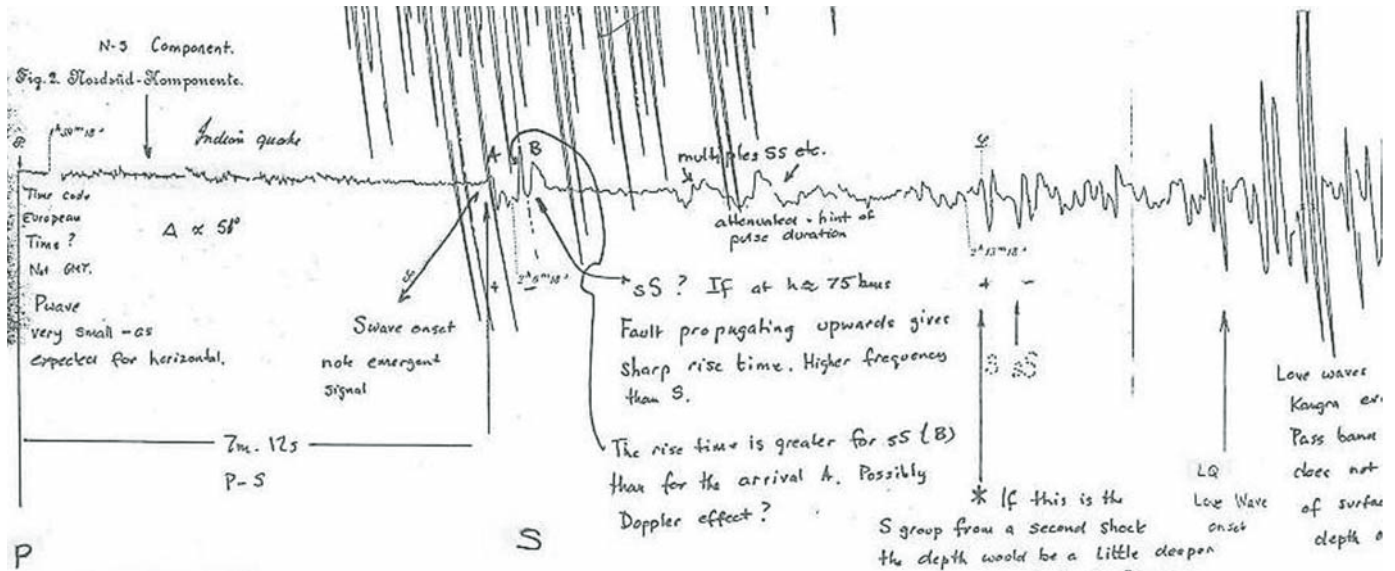 N-S Component.
Fig. 2. Nordsüd-Komponente.
Indian quake
Time code
European
Time?
Not GMT.
Δ ∝ 51°
Pwave
very small - as
expected for horizontal.
7m. 12s
P-S
P
A
B
S
+
2ʰ6ᵐ18ˢ
–
Swave onset
note emergent
signal
S
multiples SS etc.
attenuated - hint of
pulse duration
sS? If at h≈75kms
Fault propagating upwards gives
sharp rise time. Higher frequency
than S.
The rise time is greater for sS (B)
than for the arrival A. Possibly
Doppler effect?
2ʰ13ᵐ18ˢ
+ –
S sS
* If this is the
S group from a second shock
the depth would be a little deeper
LQ
Love Wave
onset
Love waves
Kangra
Pass band
does not
of
depth